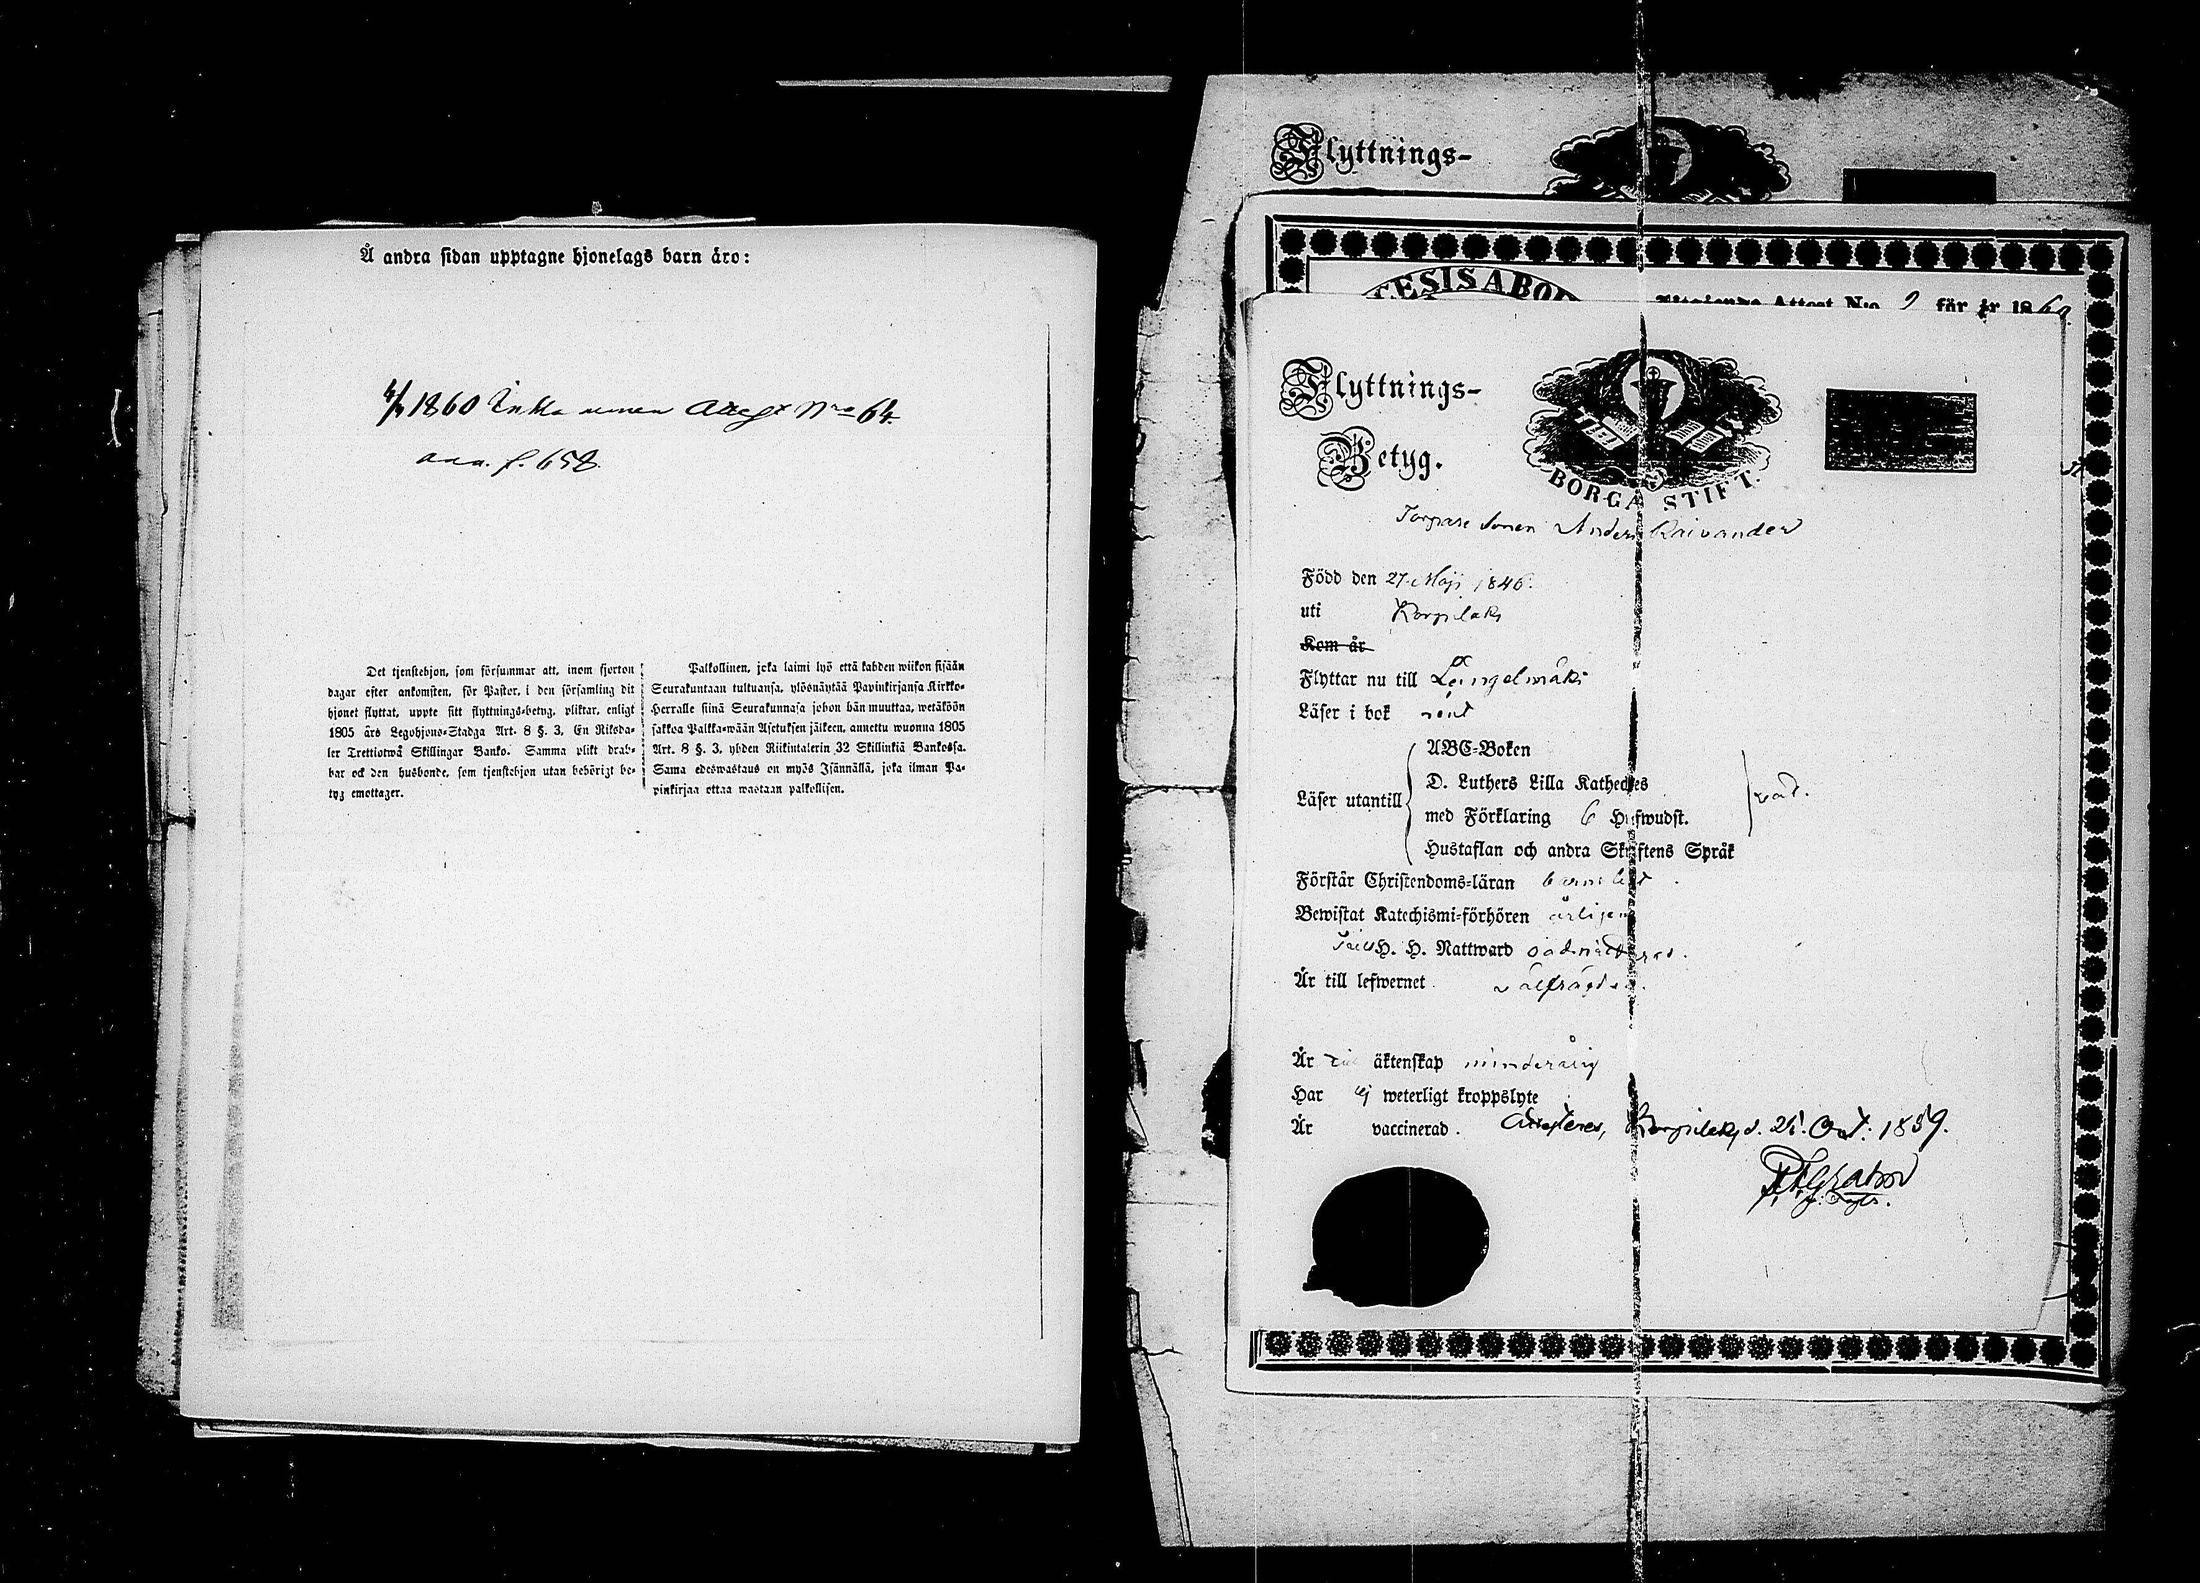 Å andra sidan upptagne hjonelags barn äro:
4/4 1860 Attest Nro 64.
f. 658.
Det tjenstehjon, som försummar att, inom fjorton
dagar efter ankomsten, för Pastor, i den församling dit
hjonet flyttat, uppte sitt flyttnings-betyg, pliktar, enligt
1805 års Legohjons-Stadga Art. 8 §. 3, En Riksda-
ler Trettiotwå Skillingar Banko. Samma plikt drab-
bar ock den husbonde, som tjenstehjon utan behörigt be-
tyg emottager.
Palkollinen, joka laimi lyö että kahden wiikon sisään
Seurakuntaan tultuansa, ylösnäytää Papinkirjansa Kirkko-
Herralle siinä Seurakunnasa johon hän muuttaa, wetäköön
sakkoa Palkka-wään Asetuksen jälkeen, annettu wuonna 1805
Art. 8 §. 3, yhden Riikintalerin 32 Skillinkiä Bankossa.
Sama edeswastaus on myös Isännällä, joka ilman Pa-
pinkirjaa ottaa wastaan palkollisen.
Flyttnings-
Attest N:o 9 för år 1860.
Flyttnings-
Betyg.
BORGÅ STIFT.
Torpare Sonen Anders Raivander
Född den 27 Maji 1846.
uti Korpilaks
Kom år
Flyttar nu till Längelmäki
Läser i bok rent
Läser utantill
ABC-Boken
D. Luthers Lilla Katheches
med Förklaring 6 Hufwudst.
Hustaflan och andra Skriftens Språk
Förstår Christendoms-läran
Bewistat Katechismi-förhören årligen
H. H. Nattward oadmitterad.
Är till lefwernet välfrägdad.
Är till äktenskap minderårig
Har ej weterligt kroppslyte
Är vaccinerad. Attesteras, Korpilaks d. 25 Oct. 1859.